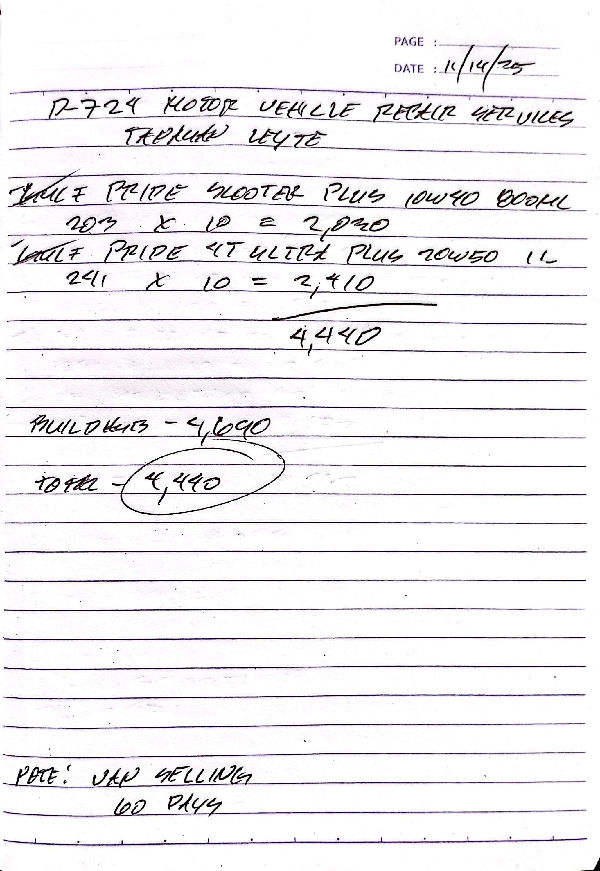 PAGE :
DATE : 11/14/25
R-724 MOTOR VEHICLE REPAIR SERVICES
TAPAHAN LEYTE
GULF PRIDE SCOOTER PLUS 10W40 800ML
203 X 10 = 2,030
GULF PRIDE 4T ULTRA PLUS 20W50 1L
241 X 10 = 2,410
4,440
BUILDHUB - 4,690
TOTAL - 4,440
NOTE: VAN SELLING
60 DAYS